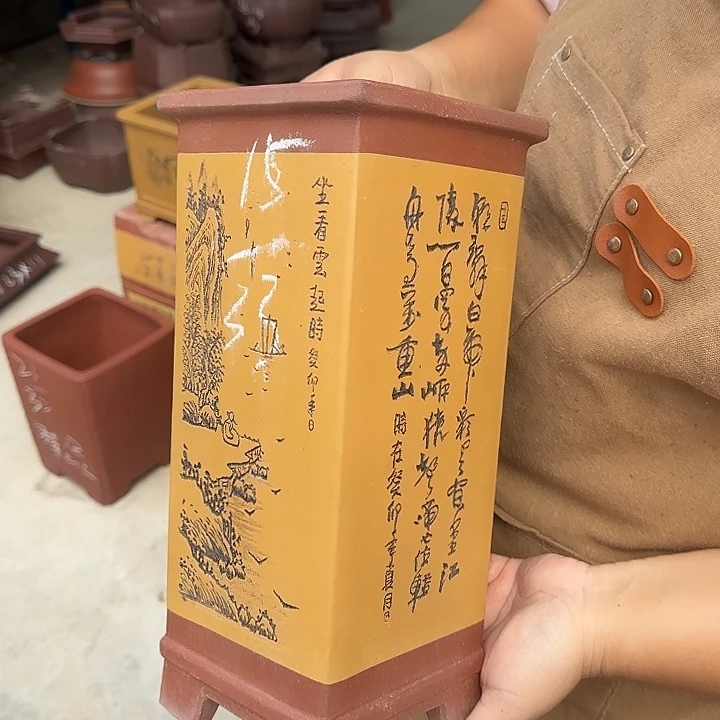 坐看雲起時 癸卯年日
朝辭白帝彩雲間千里江
陵一日還兩岸猿聲啼不住輕
舟已過萬重山 時在癸卯年月日